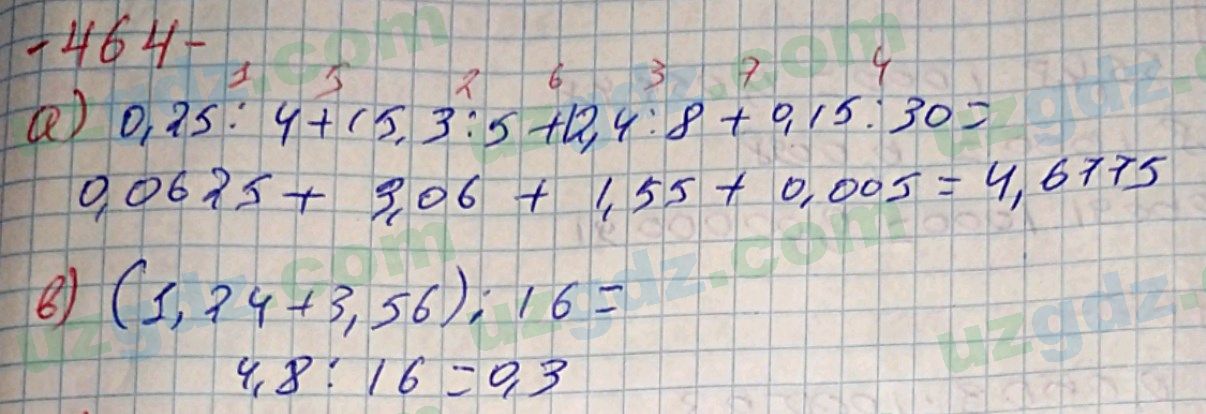 -464-
1 5 2 6 3 7 4
а) 0,25 : 4 + 15,3 : 5 + 12,4 : 8 + 0,15 : 30 =
0,0625 + 3,06 + 1,55 + 0,005 = 4,6775
в) (1,24 + 3,56) : 16 =
4,8 : 16 = 0,3
uzgdz.com